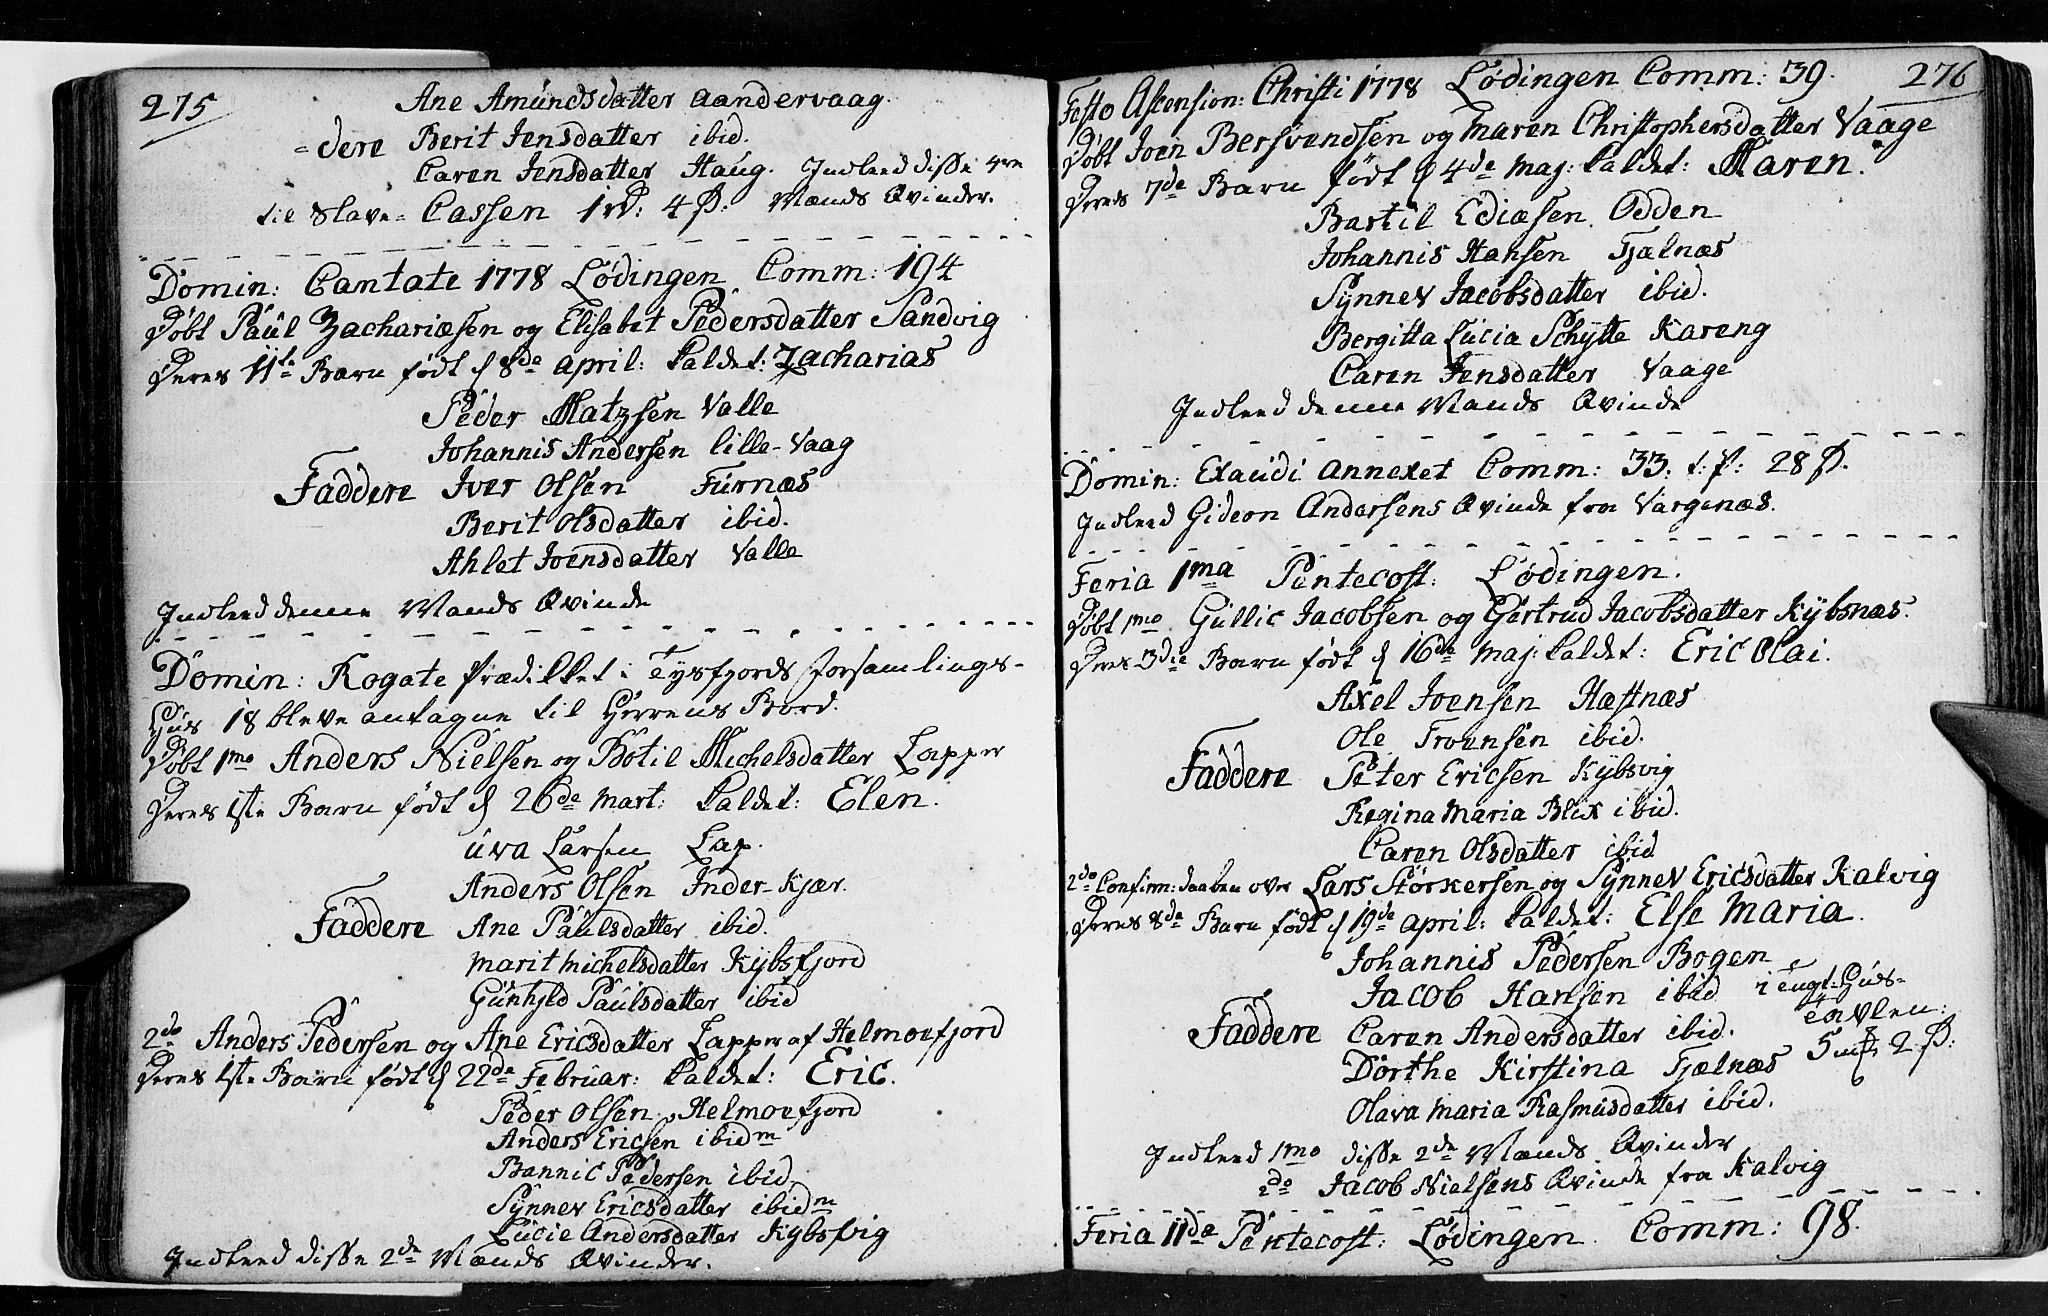 275
Ane Amundsdatter Aandervaag.
=dere Berit Jensdatter ibid.
Caren Jensdatter Haug. Indleed disse 4re
til Slave=Cassen 1 rd: 4 ß. Mænds Qvinder.
Domin: Cantate 1778 Lödingen Comm: 194
Döbt Paul Zachariæsen og Elisabet Pedersdatter Sandvig
Deres 11te Barn födt d 8de April: kaldet: Zacharias
Peder Matzsen Valle
Johannis Andersen Lille-Vaag
Faddere Iver Olsen Furnæs
Berit Olsdatter ibid.
Ahlet Joensdatter Valle
Indleed denne Mands Qvinde
Domin: Rogate Prædikket i Tysfjords Forsamlings-
Huus 18 bleve antagne til Herrens Bord.
Döbt 1mo Anders Nielsen og Botil Michelsdatter Lapper
Deres 1ste Barn födt d 26de Mart: kaldet: Elen.
Uva Larsen Lap.
Anders Olsen Inder-Kjær.
Faddere Ane Paulsdatter ibid.
Marit Michelsdatter Kybsfjord
Gunhyld Paulsdatter ibid
2do Anders Pedersen og Ane Ericsdatter Lapper af Helmoefjord
Deres 1ste Barn födt d 22de Februar: kaldet: Eric.
Peder Olsen Helmoefjord
Anders Ericsen ibidm
Bannic Pedersen ibid.
Synnev Ericsdatter ibidm
Lucie Andersdatter Kybsvig
Indleed disse 2de Mænds Qvinder.
276
Festo Ascension: Christi 1778 Lödingen Comm: 39.
Döbt Joen Bersvendsen og Maren Christophersdatter Vaage
Deres 7de Barn födt d 4de Maj: kaldet: Maren.
Bastil Ediæsen Odden
Johannis Hansen Fjælnæs
Synnev Jacobsdatter ibid.
Bergitta Lucia Schytte Kareng
Caren Jensdatter Vaage
Indleed denne Mands Qvinde
Domin: Exaudi Annexet Comm: 33. t: p: 28 ß.
Indleed Gideon Andersens Qvinde fra Vargenæs.
Feria 1ma Pentecost: Lödingen.
Döbt 1mo Gullic Jacobsen og Gertrud Jacobsdatter Kybsnæs.
Deres 3die Barn födt d 16de Maj: kaldet: Eric Olai.
Axel Joensen Hæstnæs
Ole Troensen ibid.
Faddere Peter Ericsen Kybsvig
Regina Maria Blix ibid.
Caren Olsdatter ibid
2do Confirm: Daaben over Lars Störkersen og Synnev Ericsdatter Kalvig
Deres 8de Barn födt d 19de April: kaldet: Else Maria.
Johannis Pedersen Bogen
Jacob Hansen ibid i fugt-Huus-
Faddere Caren Andersdatter ibid. tavlen:
Dorthe Kirstina Fjælnæs 5 mk 2 ß:
Olava Maria Rasmusdatter ibid.
Indleed 1mo disse 2de Mænds Qvinder
2do Jacob Nielsens Qvinde fra Kalvig
Feria 11da Pentecost: Lödingen Comm: 98.